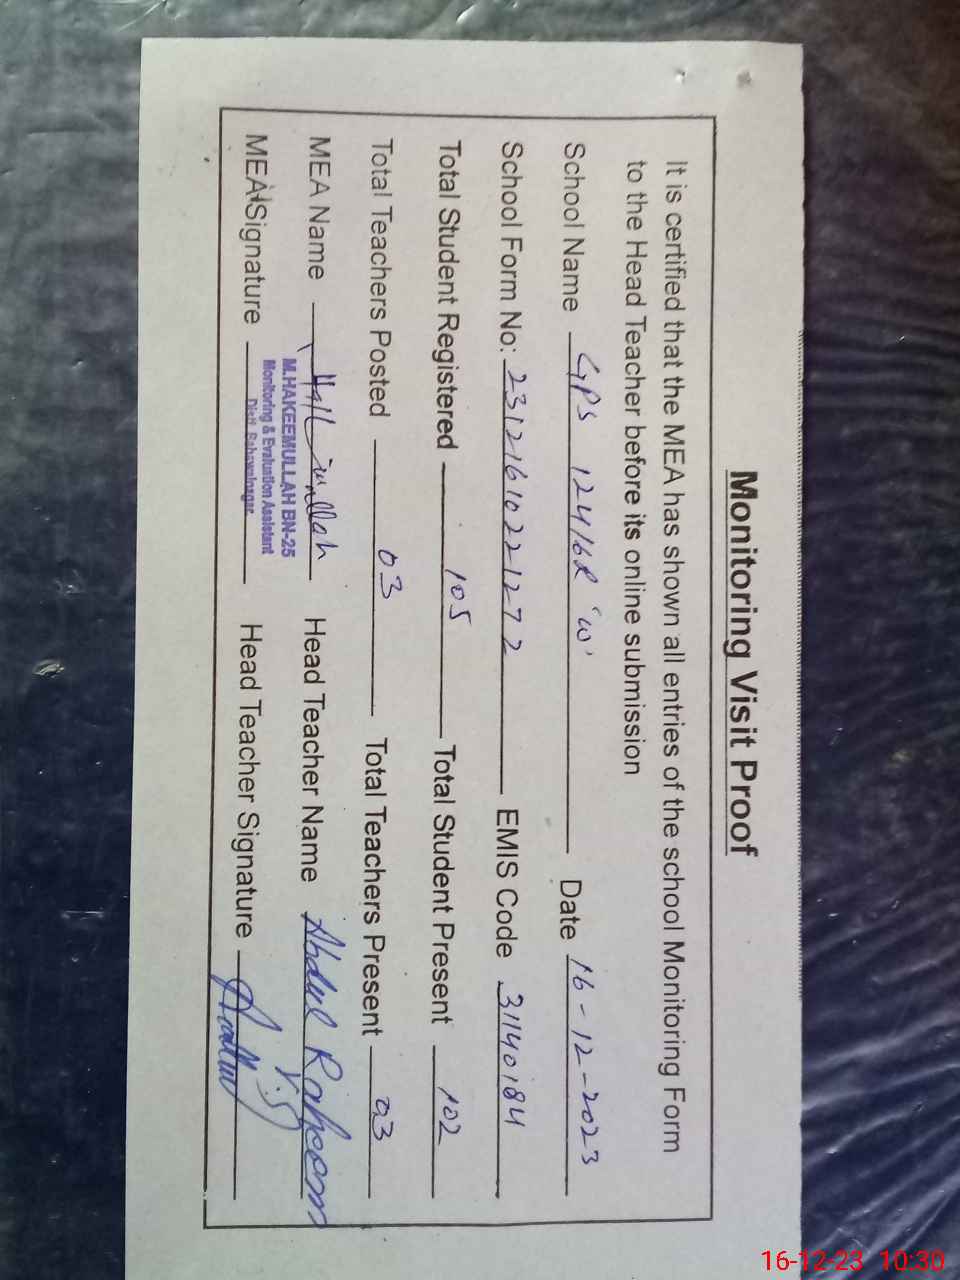 Monitoring Visit Proof
It is certified that the MEA has shown all entries of the school Monitoring Form
to the Head Teacher before its online submission
School Name GPS 124/6R 'W' Date 16-12-2023
School Form No: 23121610221272 EMIS Code 31140184
Total Student Registered 105 Total Student Present 102
Total Teachers Posted 03 Total Teachers Present 03
MEA Name Head Teacher Name Abdul Raheem
M.HAKEEMULLAH BN-25
Monitoring & Evaluation Assistant
Distt. Bahawalnagar
MEA Signature Head Teacher Signature
16-12-23 10:30